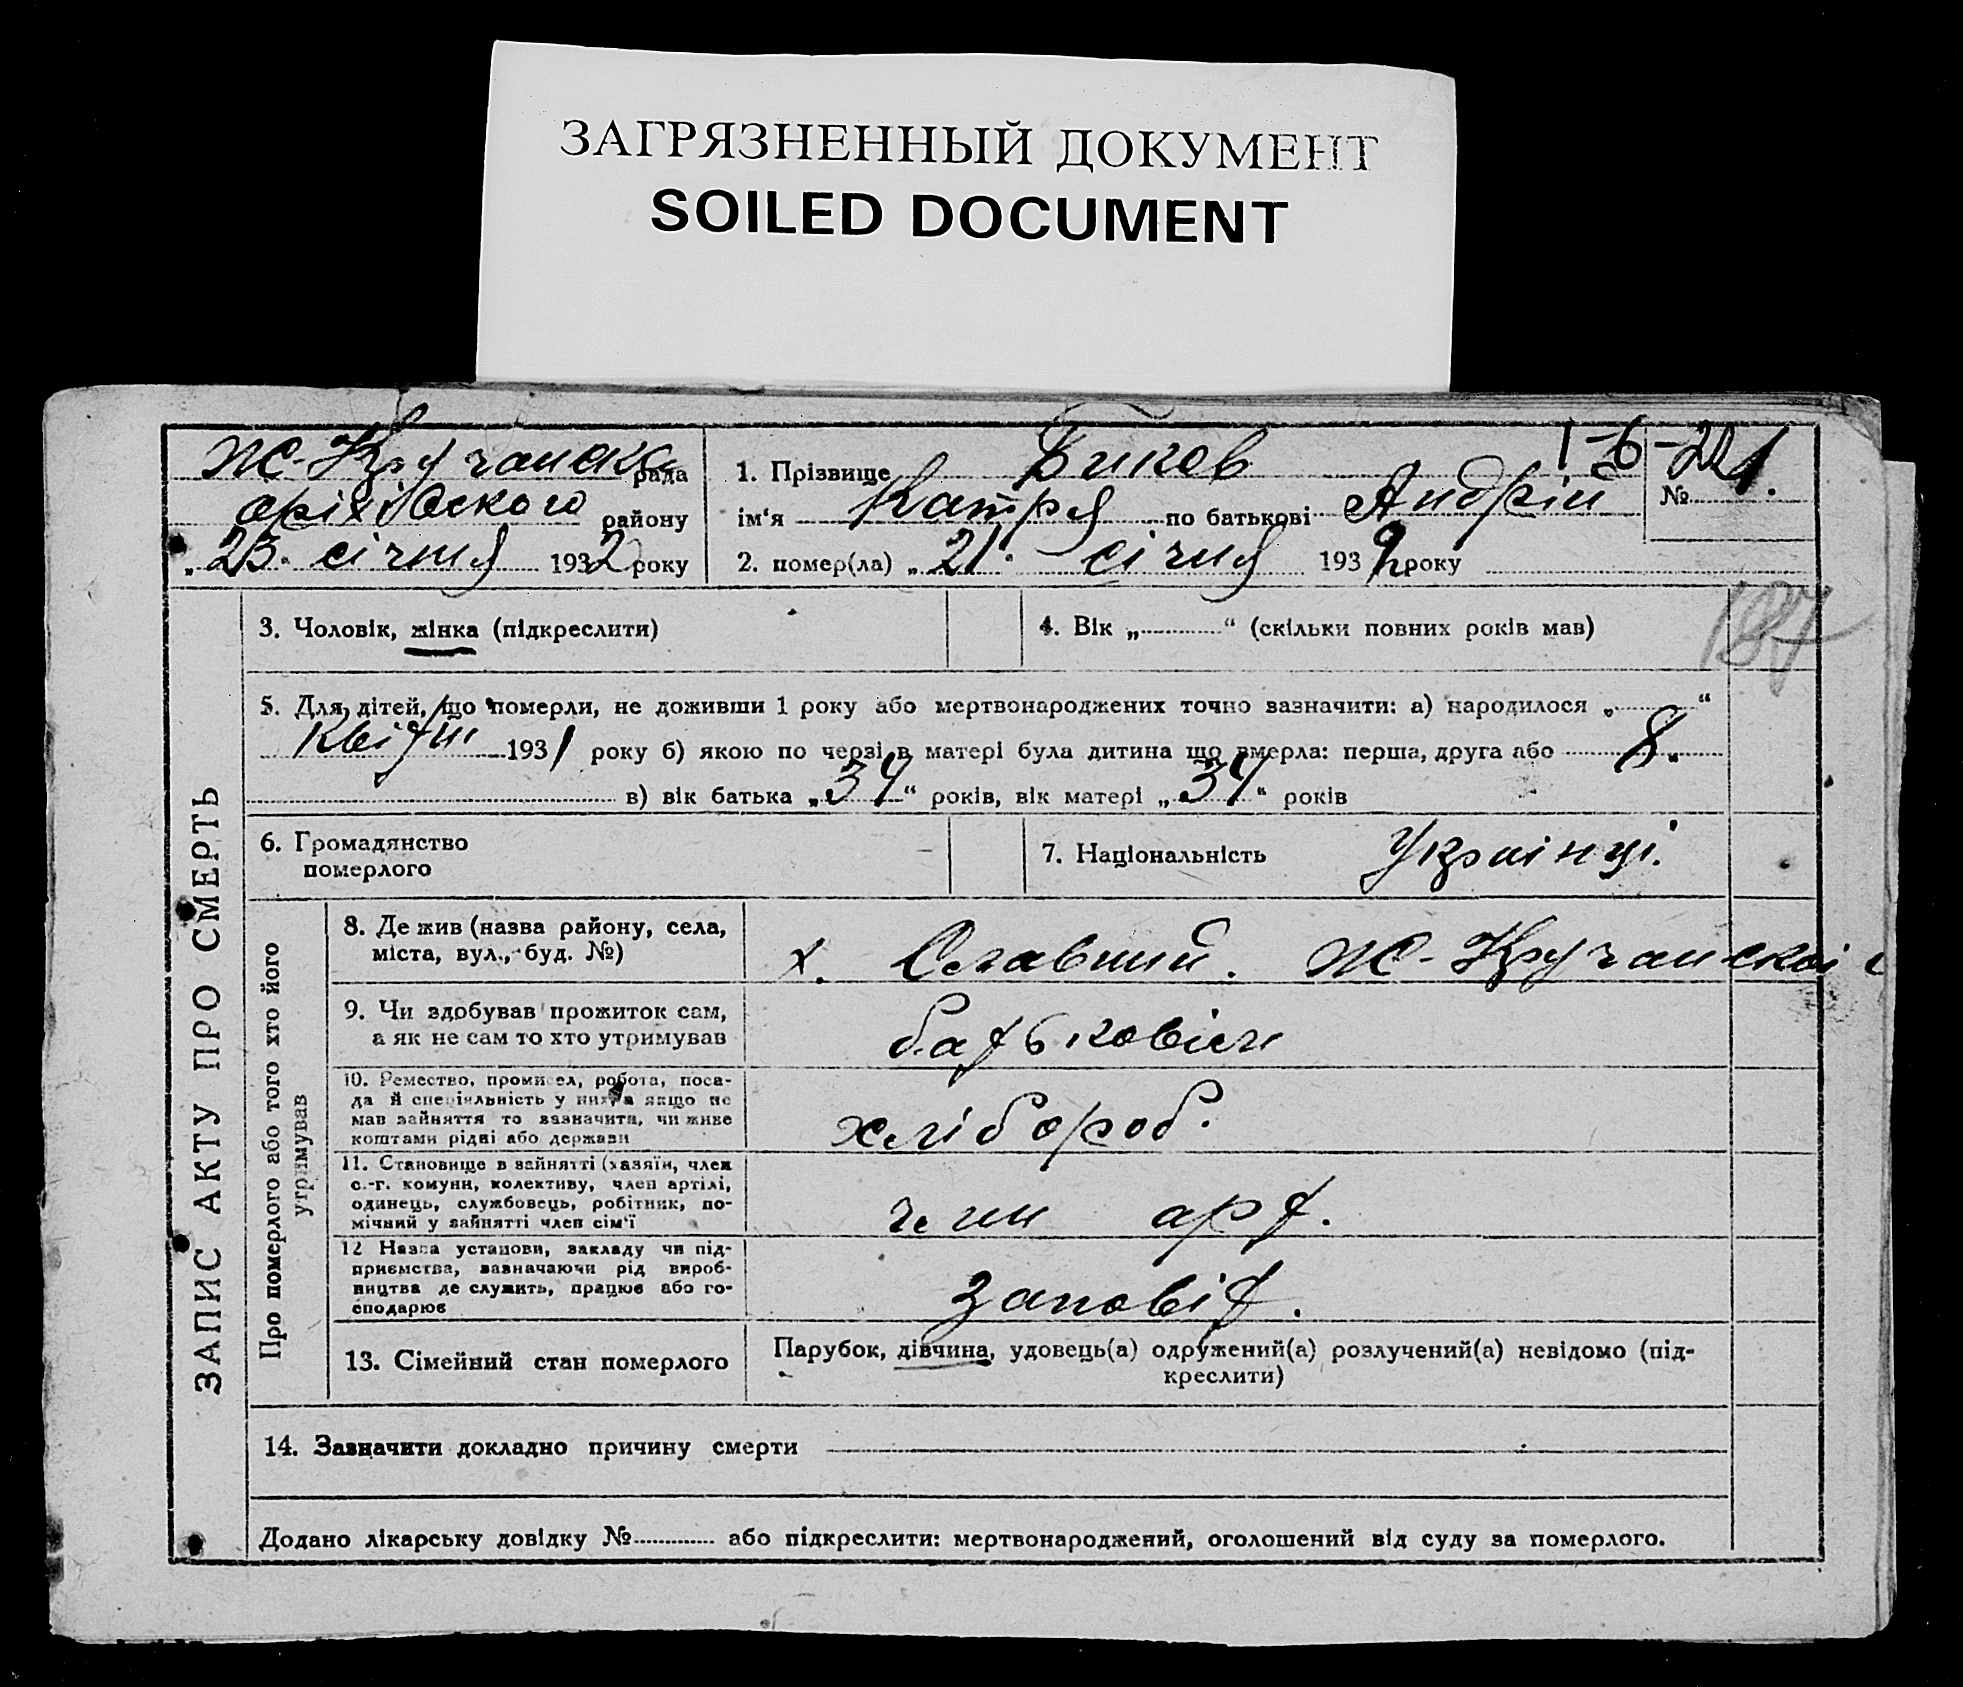 ЗАГРЯЗНЕННЫЙ ДОКУМЕНТ
SOILED DOCUMENT
Ж-Кручанска рада
оріхівского району
„23" січня 1932 року
1. Прізвище Биков
ім'я Катря по батькові Андрій
2. помер(ла) „21" січня 1932 року
1-6-22
№ 1.
187
ЗАПИС АКТУ ПРО СМЕРТЬ
3. Чоловік, жінка (підкреслити)
4. Вік „............" (скільки повних років мав)
5. Для дітей, що померли, не доживши 1 року або мертвонароджених точно зазначити: а) народилося „............"
193 1 року б) якою по черзі в матері була дитина що вмерла: перша, друга або 8.
в) вік батька „34" років, вік матері „34" років
6. Громадянство
померлого
7. Національність Українці.
Про померлого або того хто його
утримував
8. Де жив (назва району, села,
міста, вул., буд. №)
х. Славний. Ж-Кручанскоі
9. Чи здобував прожиток сам,
а як не сам то хто утримував
батьковіли
10. Ремество, промисел, робота, поса-
да й спеціяльність у них, а якщо не
мав зайняття то зазначити, чи живе
коштами рідні або держави
хлібороб.
11. Становище в зайнятті (хазяїн, член
с.-г. комуни, колективу, член артілі,
одинець, службовець, робітник, по-
мічний у зайнятті член сім'ї
член арт.
12 Назва установи, закладу чи під-
приємства, зазначаючи рід вироб-
ництва де служить, працює або го-
сподарює
Заповіт.
13. Сімейний стан померлого
Парубок, дівчина, удовець(а) одружений(а) розлучений(а) невідомо (під-
креслити)
14. Зазначити докладно причину смерти
Додано лікарську довідку №............ або підкреслити: мертвонароджений, оголошений від суду за померлого.